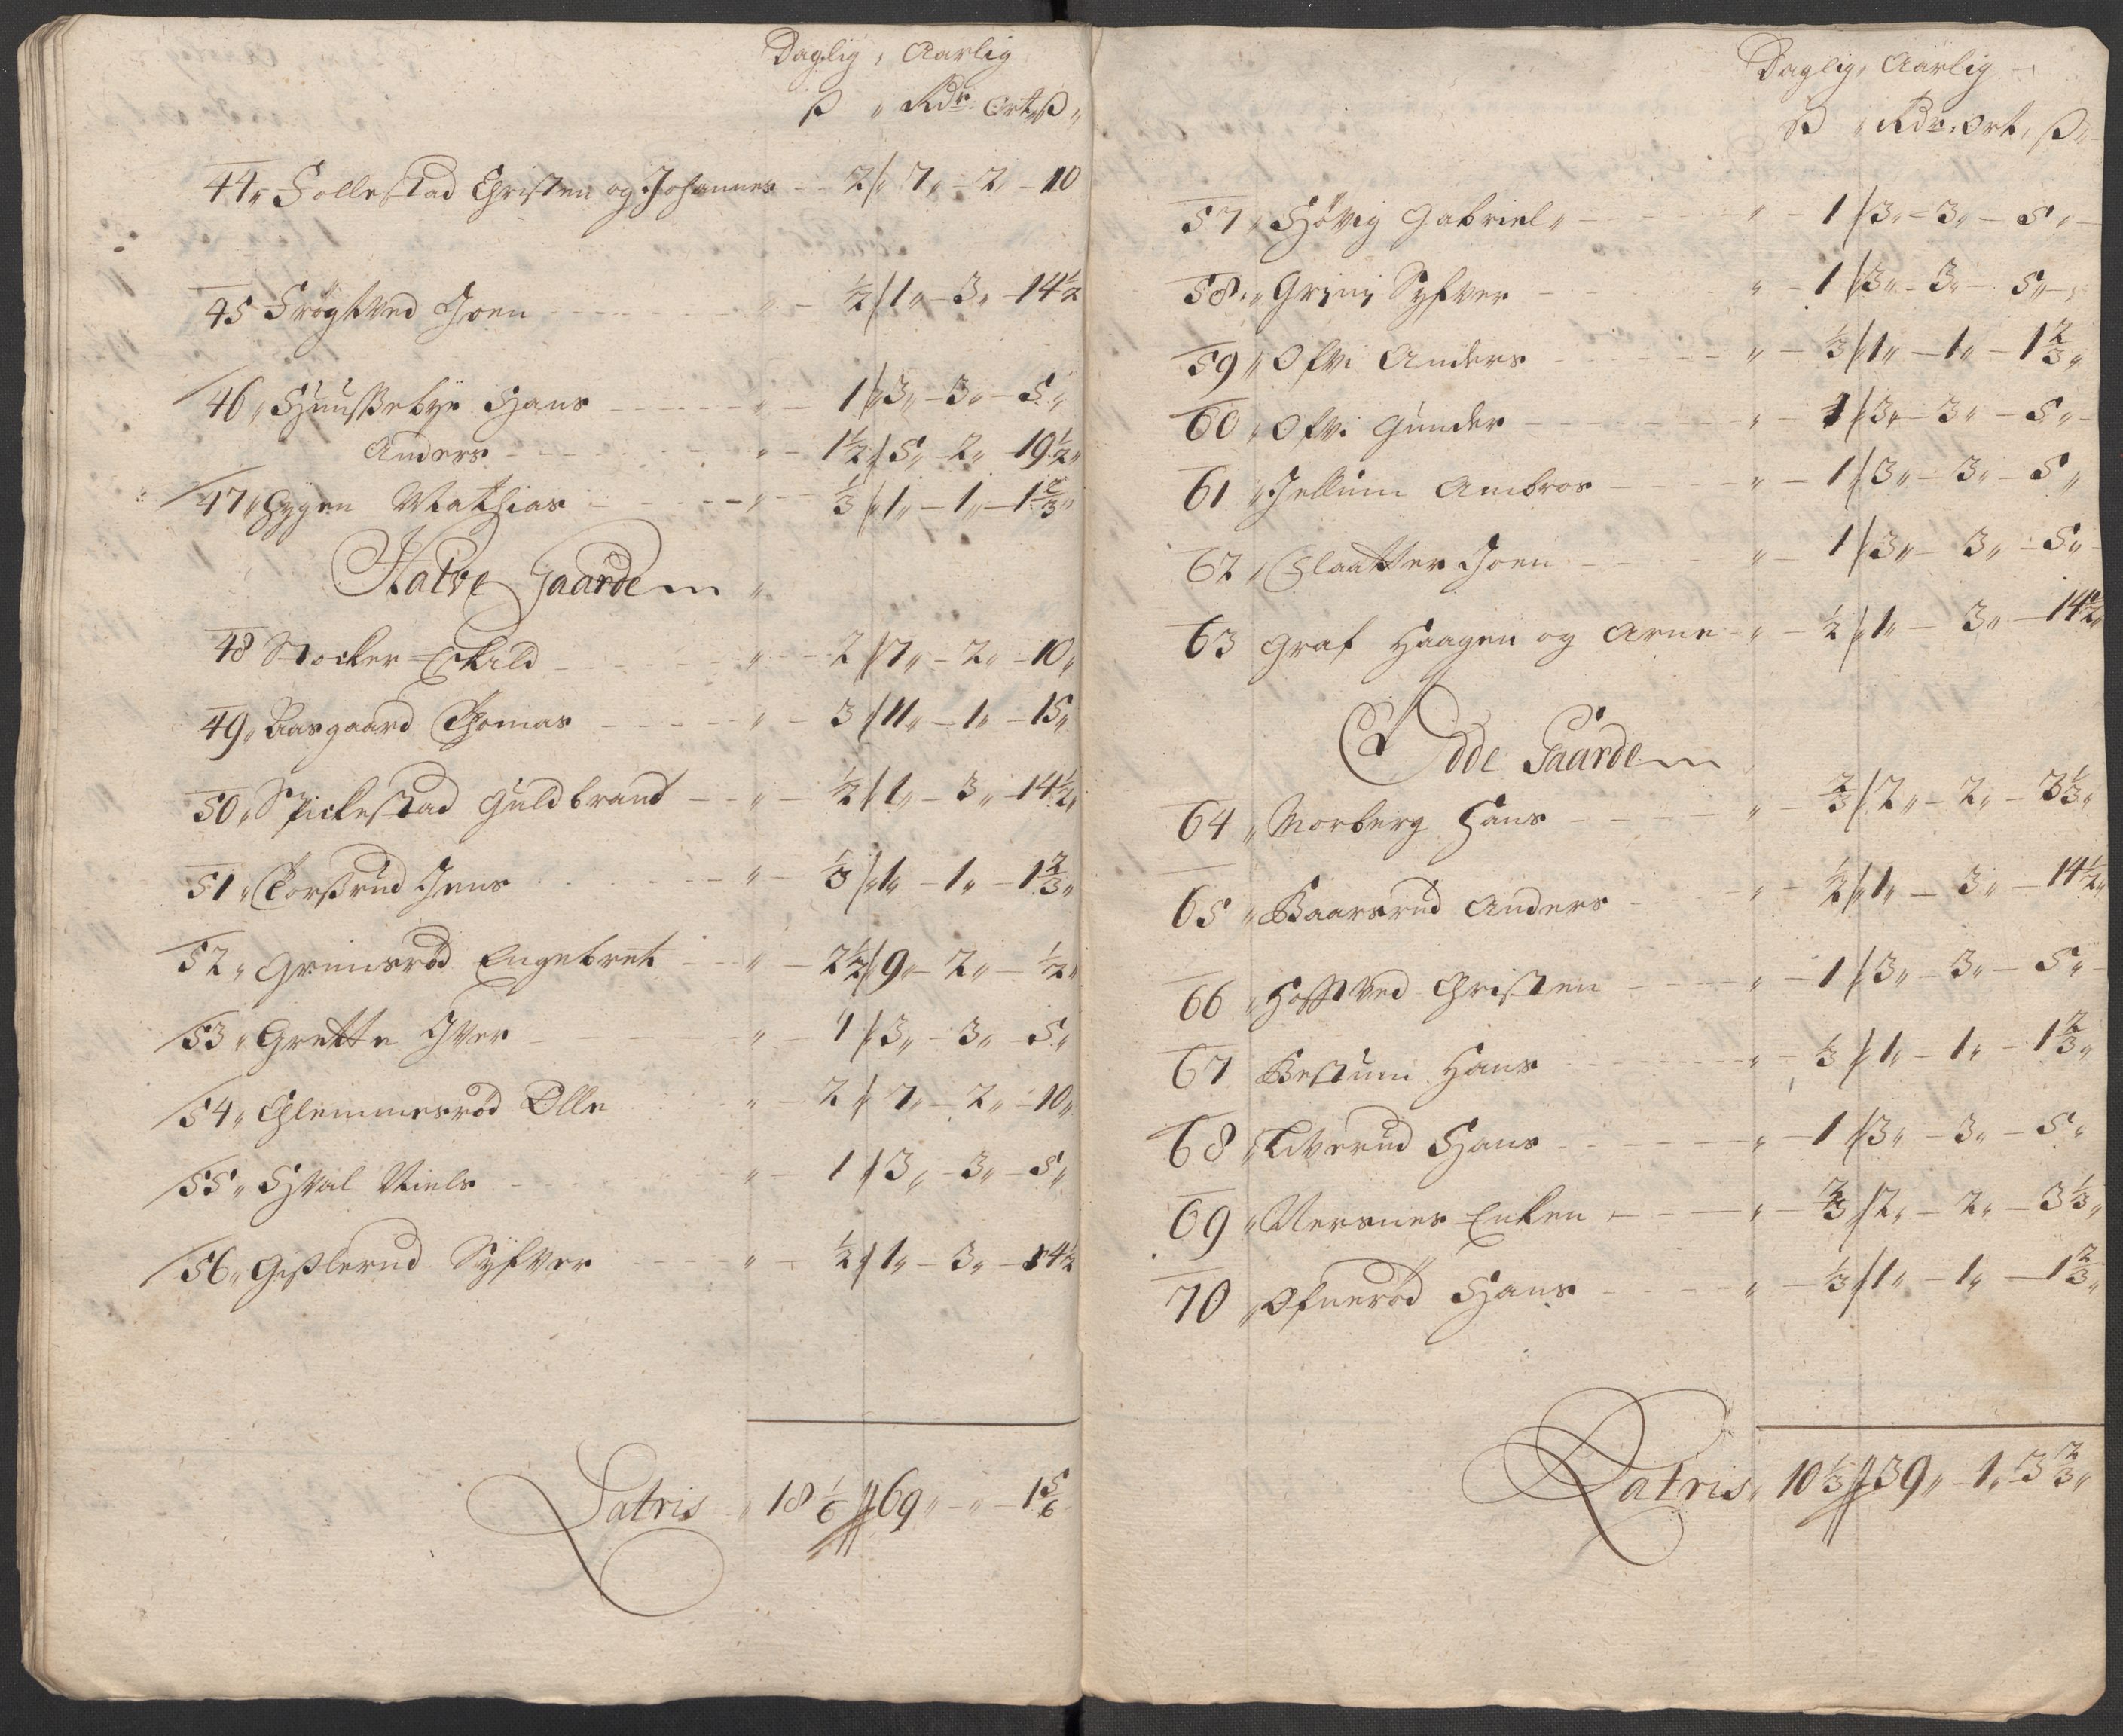 Daglig, Aarlig
ß " Rdr. Ort, ß "
44 " Follestad Christen og Johannes - 2 " 7 " - 2 - 10
45 Frögtved Joen - ½ " 1 " - 3 " - 14½
46 " Huußebye Hans - 1 " 3 " - 3 " - 5 "
Anders - 1½ " 5 " - 2 " 19½ "
47 " Gygen Mathias - ⅓ " 1 " - 1 " - 1⅔ "
Halve Gaarden "
48 Stocker Eskild - 2 " 7 " - 2 " - 10 "
49 " Aasgaard Thomas - 3 " 11 " - 1 " - 15 "
50 " Spickestad Guldbrand - ½ " 1 " - 3 " - 14½ "
51 " Torßrud Jens - ⅓ " 1 " - 1 " - 1⅔ "
52 " Grimsröd Engebret - 2½ " 9 " - 2 " - ½ "
53 " Grette Iver - 1 " 3 " - 3 " - 5 "
54 " Glemmesröd Olle - 2 " 7 " - 2 " - 10 "
55 " Hval Niels - 1 " 3 " - 3 " - 5 "
56 " Gißlerud Syfver - ½ " 1 " - 3 " - 14½
Latris " 18⅙ " 69 " - " - 1⅚
Daglig, Aarlig
ß " Rdr. Ort, ß "
57 " Hövig Gabriel " - 1 " 3 " - 3 " - 5 "
58 " Grini Syfver - 1 " 3 " - 3 " - 5 "
59 " Ofvi Anders - ⅓ " 1 " - 1 " - 1⅔ "
60 " Ofvi Gunder - 1 " 3 " - 3 " - 5 "
61 " Jellum Ambros - 1 " 3 " - 3 " - 5 "
62 " Slaatter Joen - 1 " 3 " - 3 " - 5 "
63 Graf Haagen og Arne - ½ " 1 " - 3 " - 14½ "
Ödde Gaarden
64 " Morberg Hans - ⅔ " 2 " - 2 " - 3⅓ "
65 " Baarsrud Anders - ½ " 1 " - 3 " - 14½ "
66 " Hofftved Christen - 1 " 3 " - 3 " - 5 "
67 Bestum Hans - ⅓ " 1 " - 1 " - 1⅔ "
68 " Liverud Hans - 1 " 3 " - 3 " - 5 "
69 " Nersnes Enken - ⅔ " 2 " - 2 " - 3⅓ "
70 " Ofneröd Hans - ⅓ " 1 " - 1 " - 1⅔ "
Latris " 10⅓ " 39 " - 1 " 3⅔ "